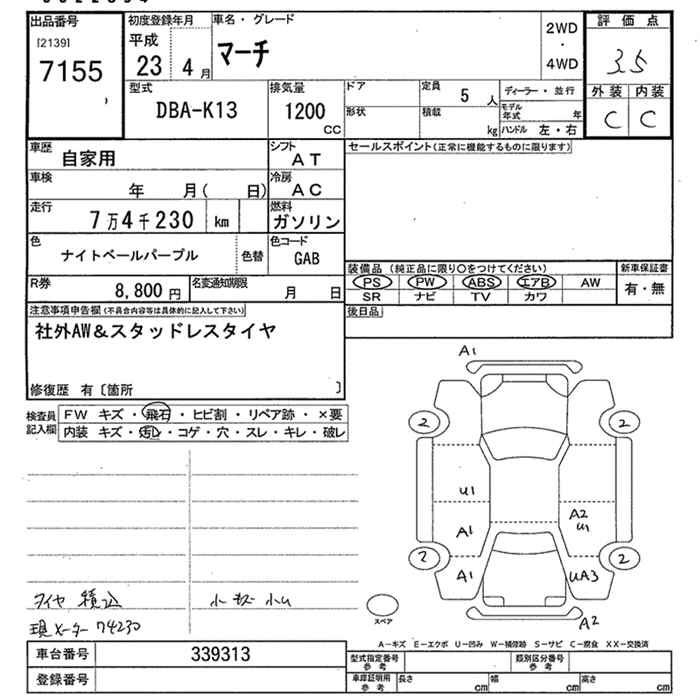 出品番号
[2139]
7155
初度登録年月
平成
23 4 月
車名・グレード
マーチ
2WD
・
4WD
評価点
3.5
外装 内装
C C
型式
DBA-K13
排気量
1200
CC
ドア
形状
定員
5 人
積載
kg
ディーラー・並行
モデル年式 年
ハンドル 左・右
車歴
自家用
シフト
AT
セールスポイント(正常に機能するものに限ります)
車検
年 月( 日)
冷房
AC
走行
7万4千230 km
燃料
ガソリン
色
ナイトベールパープル
色替
色コード
GAB
R券
8,800 円
名変通知期限
月 日
装備品(純正品に限り○をつけてください)
PS PW ABS エアB AW
SR ナビ TV カワ
新車保証書
有・無
後日品
注意事項申告欄(不具合内容等は具体的に記入して下さい)
社外AW&スタッドレスタイヤ
修復歴 有〔箇所 〕
検査員記入欄
FW キズ・飛石・ヒビ割・リペア跡・×要
内装 キズ・汚レ・コゲ・穴・スレ・キレ・破レ
A1
2 2
U1
A2
U1
A1
2 2
A1
UA3
A2
スペア
タイヤ 積込
小キズ 小U
現メーター 74230
A-キズ E-エクボ U-凹み W-補修跡 S-サビ C-腐食 XX-交換済
車台番号
339313
登録番号
型式指定番号
参考
類別区分番号
参考
車庫証明用
参考
長さ cm
幅 cm
高さ cm